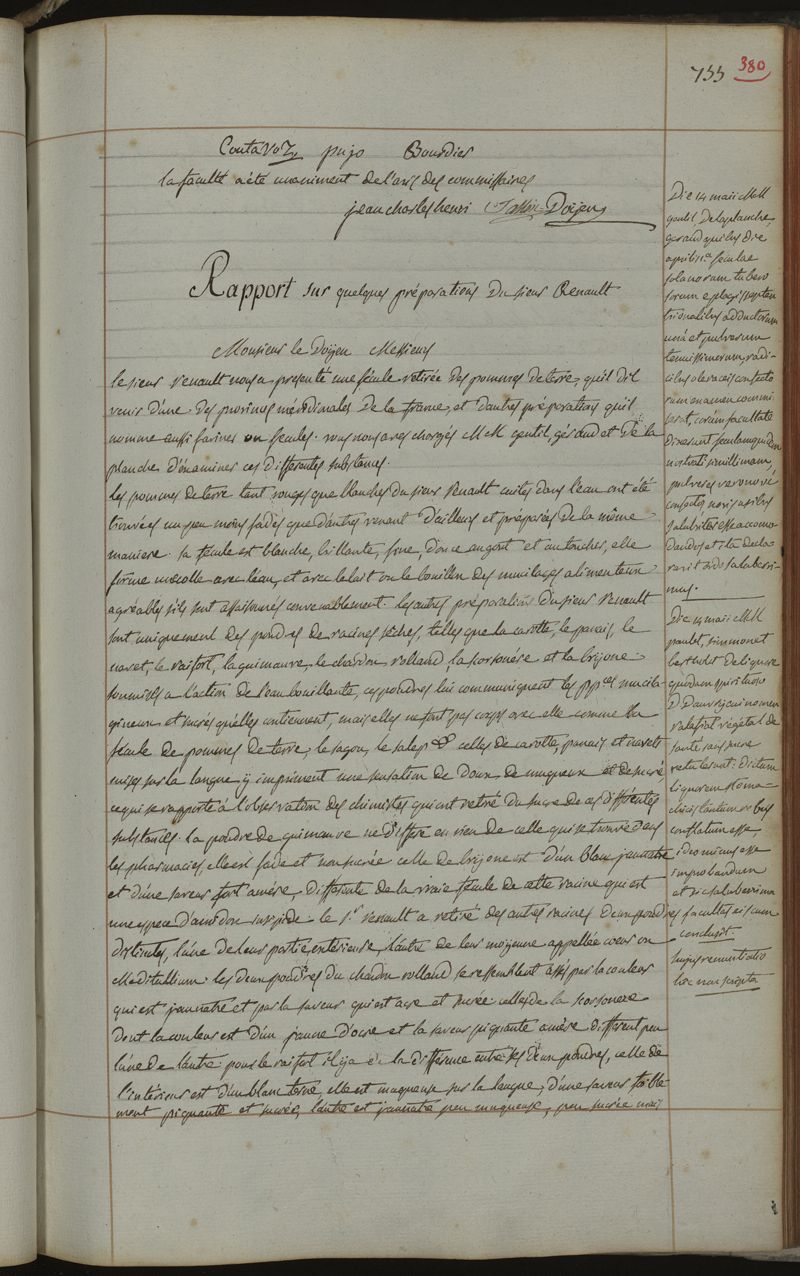 755 380
Contavoz pujo Bourdier
la faculté a été unaniment de l'avis des commissaires
jean charles henri Sallin Doijen
Rapport sur quelques préparations du sieur Renault
Monsieur le Doijen Messieurs
le sieur Renault nous a presenté une fécule retirée des pommes de terre, qu'il dit
venir d'une des provinces méridionales de la france, et d'autres préparations qu'il
nomme aussi farines ou fecules. vous nous avés chargés MM gentil, géraud et De la
planche d'éxaminer ces differentes substances.
les pommes de terre tant rouges que blanches du sieur Renault cuites dans l'eau ont été
trouvées un peu moins fades que d'autres venant d'ailleurs et préparées de la même
maniere. sa fécule est blanche, brillante, fine, douce au gout et au toucher, elle
forme une colle avec l'eau, et avec le lait ou le bouillon des mucilages alimenteux
agréables s'ils sont assaisonnés convenablement. les autres préparations du sieur Renault
sont uniquement des poudres de racines séches, telles que la carotte, le panais, le
navet, le raifort, la guimauve, le chardon rolland, la scorsonère et la brijone.
soumises a l'action de l'eau bouillante, ces poudres lui communiquent les ppes mucila-
gineux et sucrés qu'elles contiennent, mais elles ne font pas corps avec elle comme la
fécule de pommes de terre, le sagou, le salep & celles de carotte, panais et navet
mises sur la langue ij impriment une sensation de doux de muqueux et de sucré
ce qui se rapporte à l'observation des chimistes qui ont retiré du sucre de ces différentes
substances. la poudre de guimauve ne differe en rien de celle qui se trouve dans
les pharmacies, elle est fade et non sucrée celle de brijone est d'un blanc jaunatre
et d'une saveur fort amère, differente de la vraie fécule de cette racine qui est
une espece d'amidon insipide. le Sr Renault a retiré des autres racines deux poudres
distinctes, l'une de leur partie extérieure, l'autre de leur moyenne appellée coeur ou
Meditullium. les deux poudres du chardon rolland se ressemblent assés par la couleur
qui est jaunatre et par la saveur qui est acre et sucrée celles de la scorsonere
dont la couleur est d'un jaune d'ocre et la saveur piquante amère different peu
l'une de l'autre. pour le raifort il ij a de la différence entre ses deux poudres, celle de
l'intérieur est d'un blanc terne, elle est muqueuse sur la langue, d'une saveur foible-
ment piquante et sucrée, l'autre est jaunatre peu muqueuse, peu sucrée mais
Die 14 maii MM
gentil Delaplanche,
geraud quibus die
aprilis 1a feculae
solanorum tubero
sorum e plagis septen
trionalibus adductorum
unà et pulverum
tenuissimorum, radi-
cibus oleraceis confecto
rum examen commi
serat, coràm facultate
dixerunt feculam quidem
nostrati simillimam,
pulveres vero novè
confectos novis usibus
salubritèr esse accomo
dandos et ità decla-
ravit ordo saluberri-
mus.
Die 14 maii MM
paulet, simmonet
bertholet de liquore
quodam spirituoso
D Dauvry cui nomen
ratafiat végétal de
santé sans sucre
retulerunt: dictum
liquorem stoma-
chicis tantum rebus
conflatum esse
ideo minus esse
improbandum
et sic saluberrima
facultas eis cum
conclusit.
hujus renuntiatio
hic non scripta